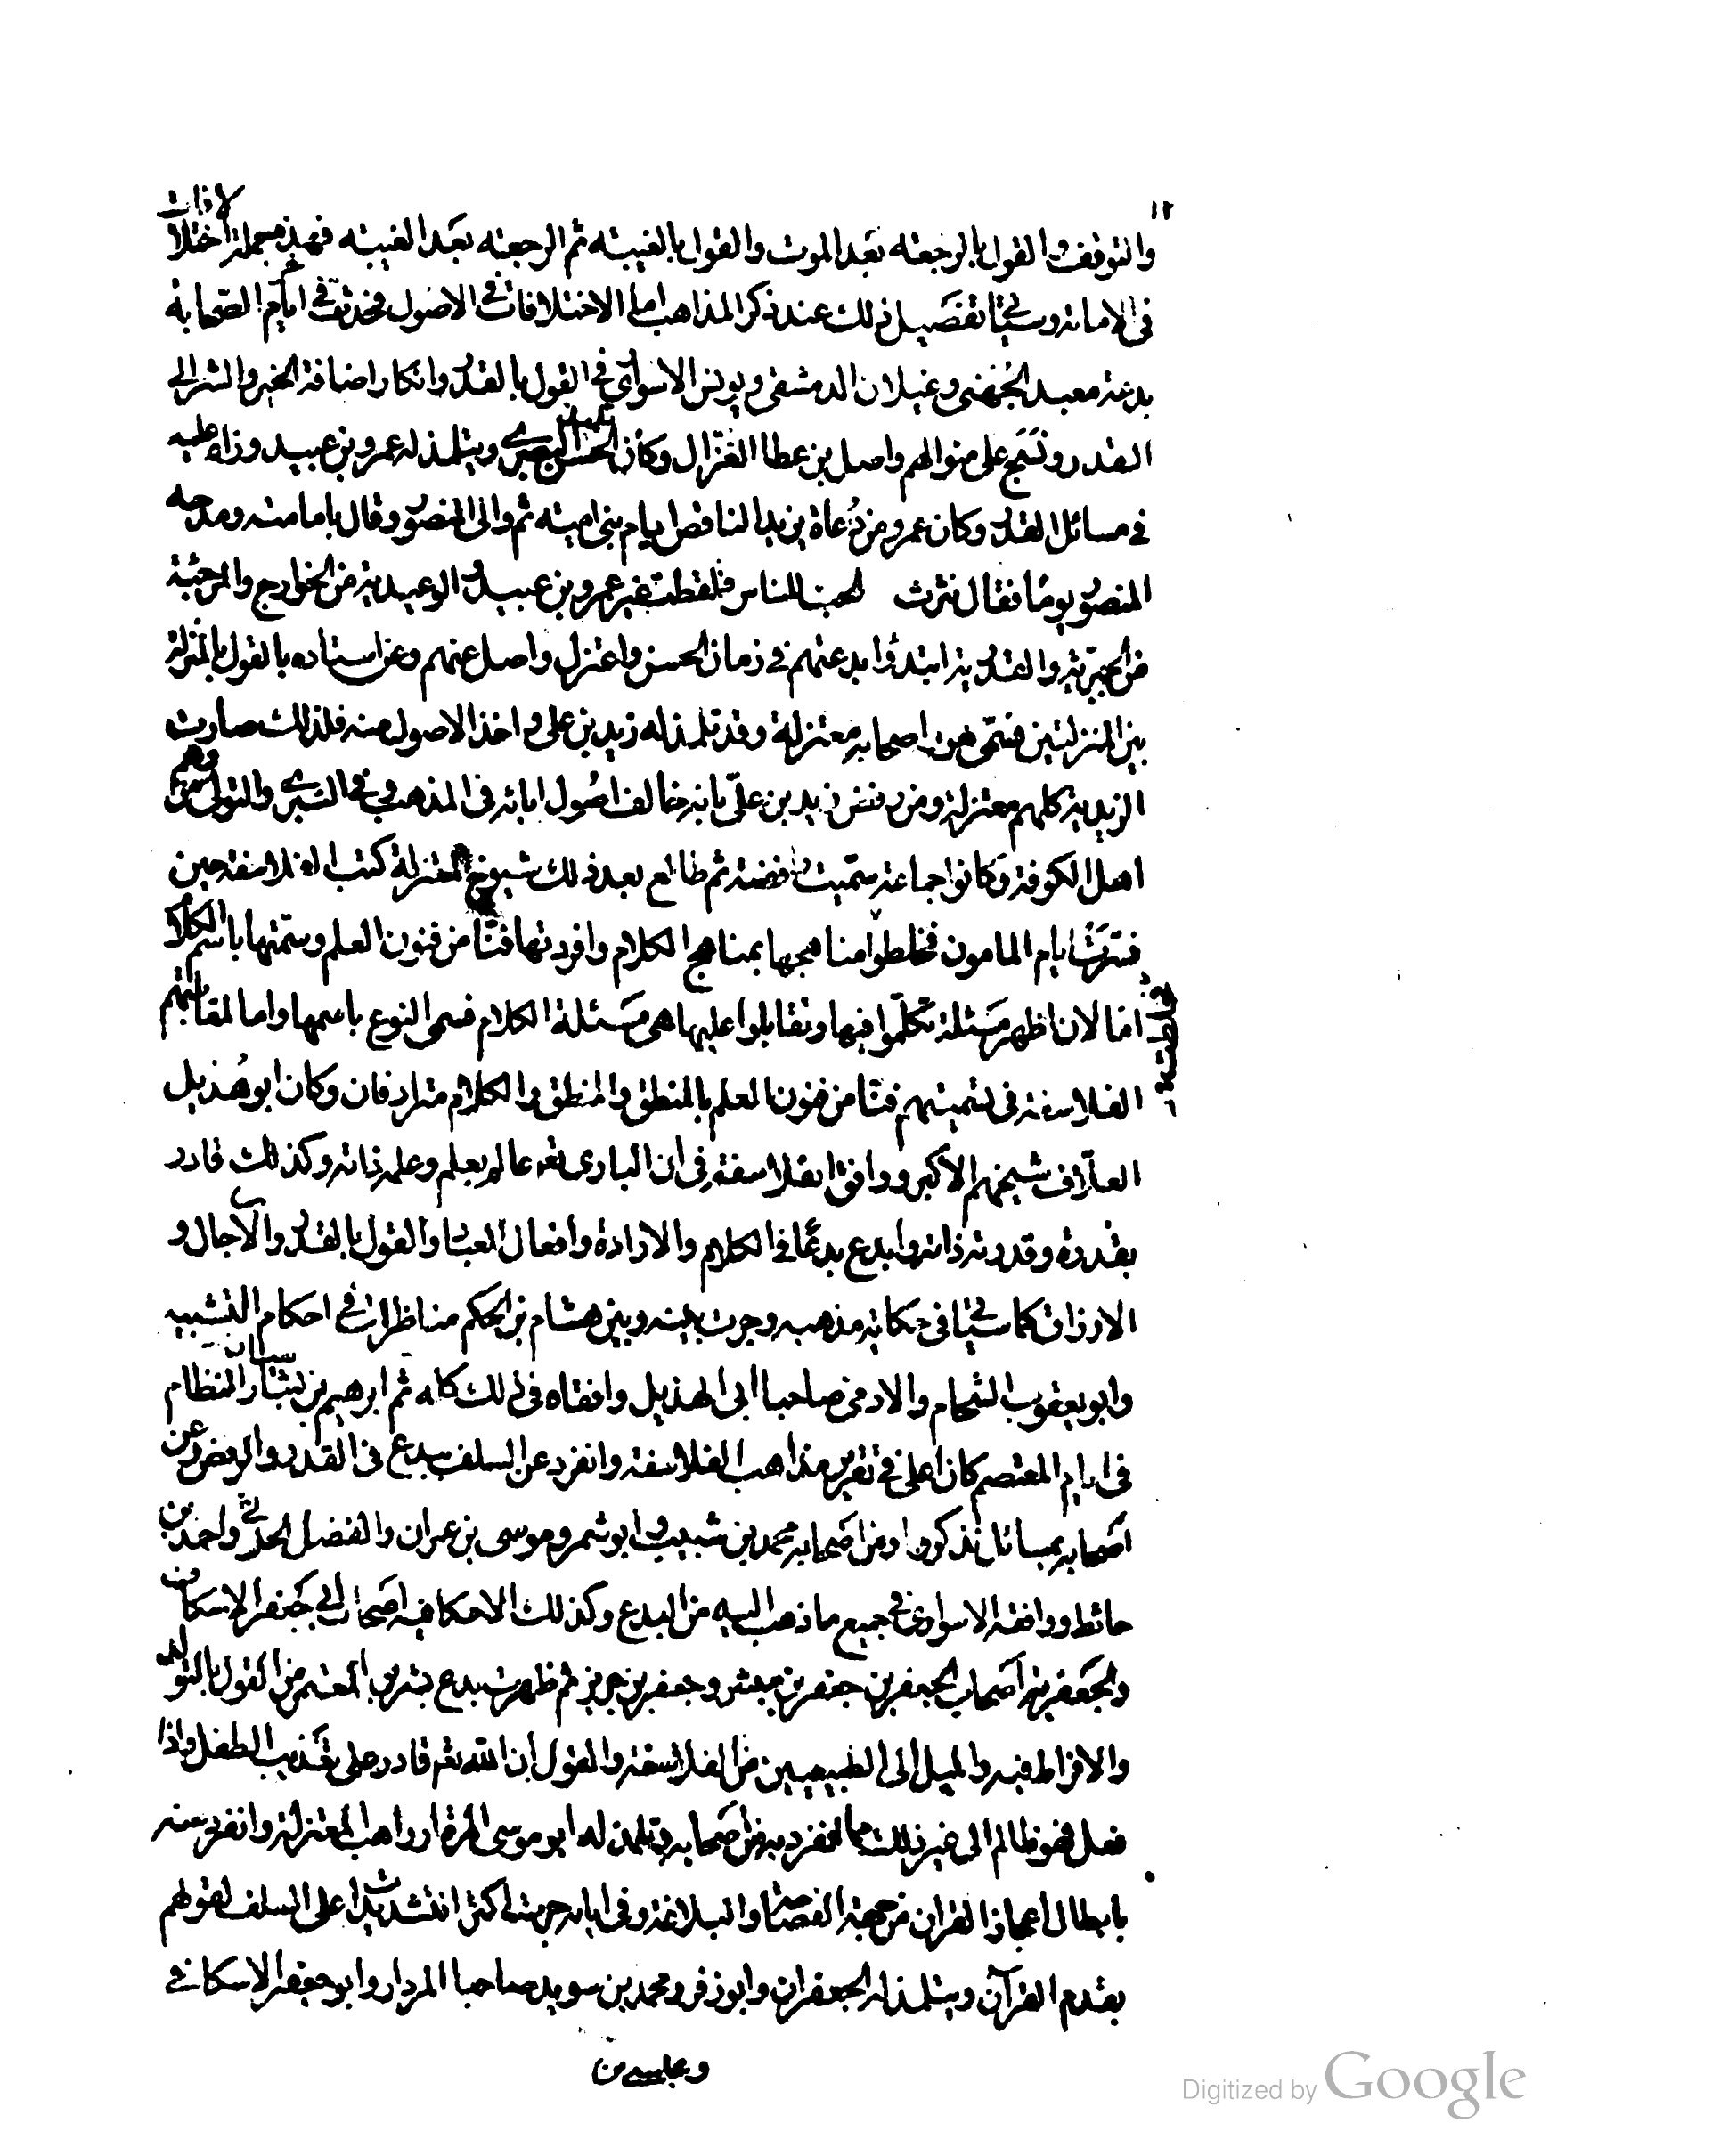 ١٢
والتوقف والقول بالرجعة بعد الموت والقول بالغيبة ثم الرجعة بعد الغيبة فهذه جملة اختلافات
في الامامة وسيأتي تفصيل ذلك عند ذكر المذاهب اما الاختلافات في الاصول فحدثت في ايام الصحابة
بدعة معبد الجهني وغيلان الدمشقي ويونس الاسواري في القول بالقدر وانكار اضافة الخير والشر الى
القدر ونسج على منوالهم واصل بن عطا الغزال وكان تلميذ الحسن البصري ويتلمذ له عمرو بن عبيد وزاد عليه
في مسائل القدر وكان عمرو من دعاة يزيد الناقص ايام بني امية ثم والى المنصور وقال بامامته ومدحه
المنصور يوما فقال نثرت الحب للناس فلقطت غير عمرو بن عبيد والوعيدية من الخوارج والمرجئة
من الجبرية والقدرية ابتدؤا بدعتهم في زمان الحسن واعتزل واصل عنهم وعن استاده بالقول بالمنزلة
بين المنزلتين فسمي هو واصحابه معتزلة وقد تلمذ له زيد بن علي واخذ الاصول منه فلذلك صارت
الزيدية كلهم معتزلة ومن رفض زيد بن علي بانه خالف اصول ابائه في المذهب وفي التبري والتولي وهم من
اهل الكوفة وكانوا جماعة سميت رافضة ثم طالع بعد ذلك شيوخ المعتزلة كتب الفلاسفة حين
فسرت ايام المامون فخلطوا مناهجها بمناهج الكلام وافردتها فنا من فنون العلم وسمتها باسم الكلام
اما لان اظهر مسئلة تكلموا فيها وتقابلوا عليها هي مسئلة الكلام فسمي النوع باسمها واما لمقابلتهم
الفلاسفة في تسميتهم فنا من فنون العلم بالمنطق والمنطق والكلام مترادفان وكان ابو هذيل
العلاف شيخهم الاكبر ووافق الفلاسفة في ان الباري تعه عالم بعلم وعلمه ذاته وكذلك قادر
بقدرة وقدرته ذاته وابدع بدعا في الكلام والارادة وافعال العباد والقول بالقدر والآجال و
الارزاق كما سيأتي في حكاية مذهبه وجرت بينه وبين هشام بن الحكم مناظرات في احكام التشبيه
وابو يعقوب الشحام والادمي صاحبا ابي الهذيل وافقاه في ذلك كله ثم ابرهيم بن سيار النظام
في ايام المعتصم كان اعلى في تقرير مذاهب الفلاسفة وانفرد عن السلف ببدع في القدر والرفض وعن
اصحابه بمسائل نذكرها ومن اصحابه محمد بن شبيب وابو شمر وموسى بن عمران والفضل الحدثي واحمد بن
حائط ووافقه الاسواري في جميع ما ذهب اليه من البدع وكذلك الاسكافية اصحاب ابي جعفر الاسكافي
والجعفرية اصحاب الجعفرين جعفر بن مبشر وجعفر بن حرب ثم ظهرت بدع بشر بن المعتمر من القول بالتولد
والافراط فيه والميل الى الطبيعيين من الفلاسفة والقول بان الله تعه قادر على تعذيب الطفل واذا
فعل فهو ظالم الى غير ذلك مما انفرد به من اصحابه وتلمذ له ابو موسى المردار راهب المعتزلة وانفرد عنه
بابطال اعجاز القران من جهة الفصاحة والبلاغة وفي ايامه جرت اكثر التشديدات على السلف لقولهم
بقدم القرآن ويتلمذ له الجعفران وابو زفر ومحمد بن سويد صاحبا المردار وابو جعفر الاسكافي
وعيسى بن
Digitized by Google